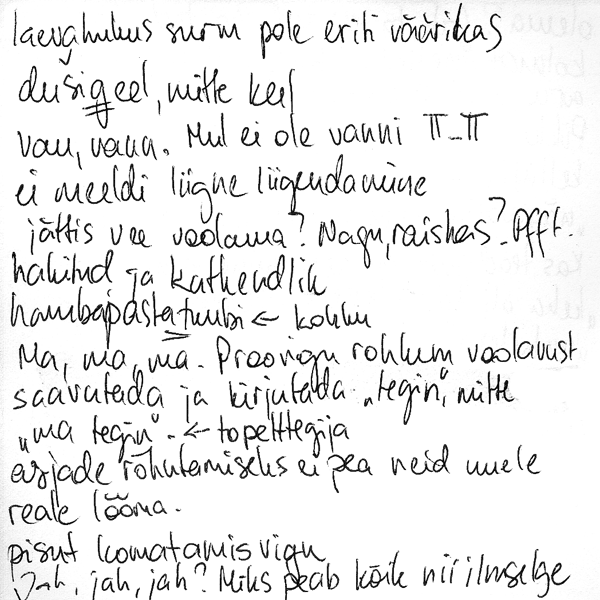 laevahukus surm pole eriti väärikas
dušigeel, mitte keel
vau, vann. Mul ei ole vanni π_π
ei meeldi liigne liigendamine
jättis vee voolama? Nagu, raiskas? Pfft.
hakitud ja katkendlik
hambapastatuubi ← kokku
Ma, ma, ma. Proovigu rohkem voolavust
saavutada ja kirjutada „tegin“, mitte
„ma tegin“. ← topelttegija
asjade rõhutamiseks ei pea neid uuele
reale lööma.
pisut komatamisvigu
Jah, jah, jah? Miks peab kõik nii ilmselge